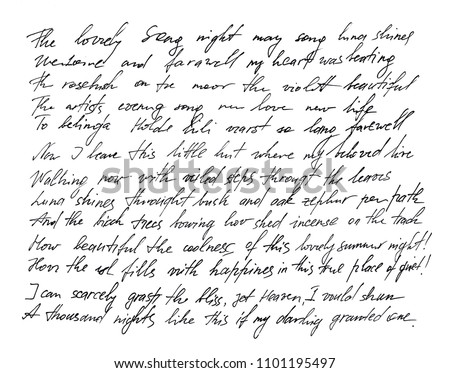 The lovely song night may song luna shines
Welcome and farawell my heart was beating
The rosebush on the moor the violett beautiful
The artists evening song new love new life
To belinda Holde Lili warst so long farewell
Now I leave this little hut where my beloved live
Walking now with veiled steps through the leaves
Luna shines throught bush and oak zephur per path
And the birch trees bowing low shed incense on the track
How beautiful the coolness of this lovely summer night!
How the soul fills with happiness in this true place of quiet!
I can scarcely grasp the bliss, jet Heaven, I would shun
A thousand nights like this if my darling granted one.
shutterstock
www.shutterstock.com · 1101195497